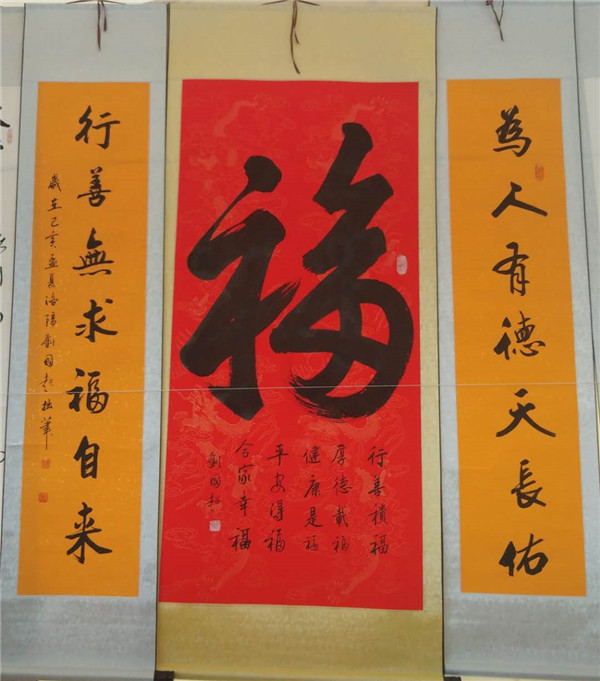 為人有德天長佑
福
行善積福
厚德載福
健康是福
平安得福
合家幸福
劉國超
行善無求福自来
歲在己亥孟夏洛陽劉國超拙筆